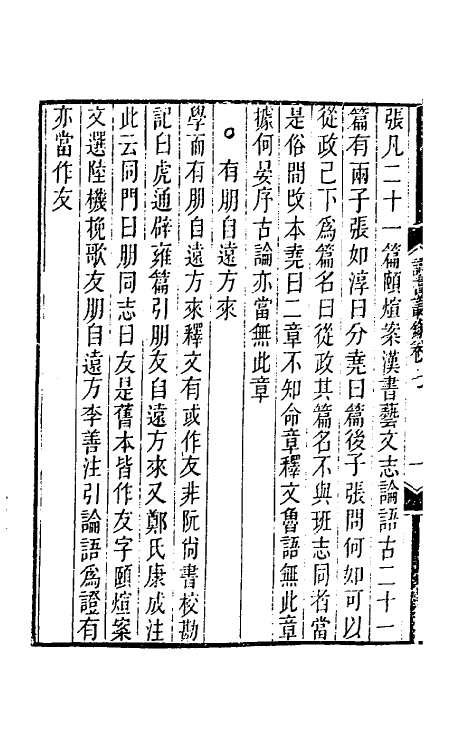 張凡二十一篇頤煊案漢書藝文志論語古二十一
篇有兩子張如淳曰分堯曰篇後子張問何如可以
從政已下爲篇名曰從政其篇名不與班志同者當
是俗間改本堯曰二章不知命章釋文魯語無此章
據何晏序古論亦當無此章
○有朋自遠方來
學而有朋自遠方來釋文有或作友非阮尙書校勘
記曰虎通辟雍篇引朋友自遠方來又鄭氏康成注
此云同門曰朋同志曰友是舊本皆作友字頤煊案
文選陸機挽歌友朋自遠方李善注引論語爲證有
亦當作友
讀書叢錄卷七
一